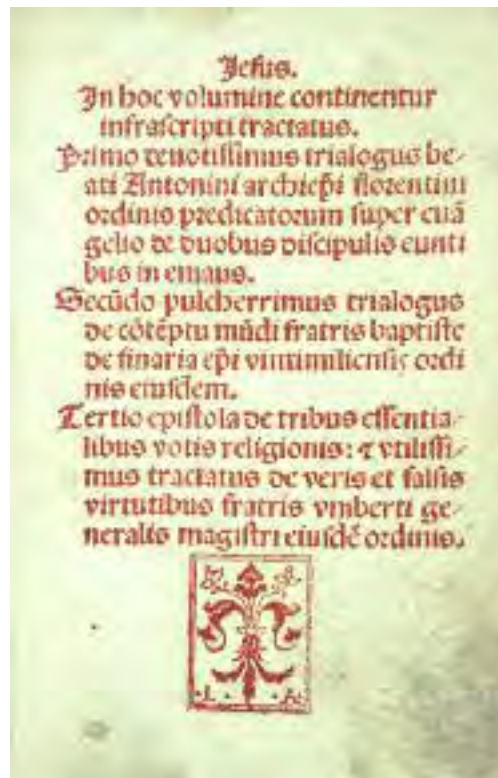 Jesus.
In hoc volumine continentur
infrascripti tractatus.
Primo deuotissimus trialogus be-
ati Antonini archiepĩ florentini
ordinis predicatorum super euã
gelio de duobus discipulis eunti
bus in emaus.
Secũdo pulcherrimus trialogus
de cõtẽptu mũdi fratris baptiste
de finaria epĩ vintimiliensis ordi
nis eiusdem.
Tertio epistola de tribus essentia-
libus votis religionis: ⁊ vtilissi-
mus tractatus de veris et falsis
virtutibus fratris vmberti ge-
neralis magistri eiusdẽ ordinis.
.L. .A.